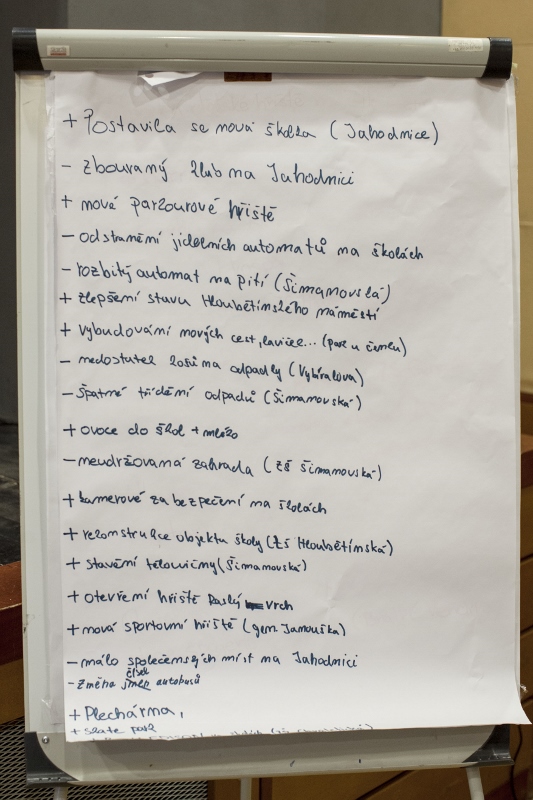 + Postavila se nová školka (Jahodnice)
- zbouraný klub na Jahodnici
+ nové parkourové hřiště
- odstranění jídelních automatů na školách
- rozbitý automat na pití (Šimanovská)
+ zlepšení stavu Hloubětínského náměstí
+ vybudování nových cest, laviček... (park u čenku)
- nedostatek košů na odpadky (Vybíralova)
- špatné třídění odpadů (Šimanovská)
+ ovoce do škol + mléko
- neudržovaná zahrada (ZŠ Šimanovská)
+ kamerové zabezpečení na školách
+ rekonstrukce objektu školy (ZŠ Hloubětínská)
+ stavění tělocvičny (Šimanovská)
+ otevření hřiště Rajský vrch
+ nová sportovní hřiště (gen. Janouška)
- málo společenských míst na Jahodnici
čísel
- změna jmen autobusů
+ Plechárna,
+ skate park